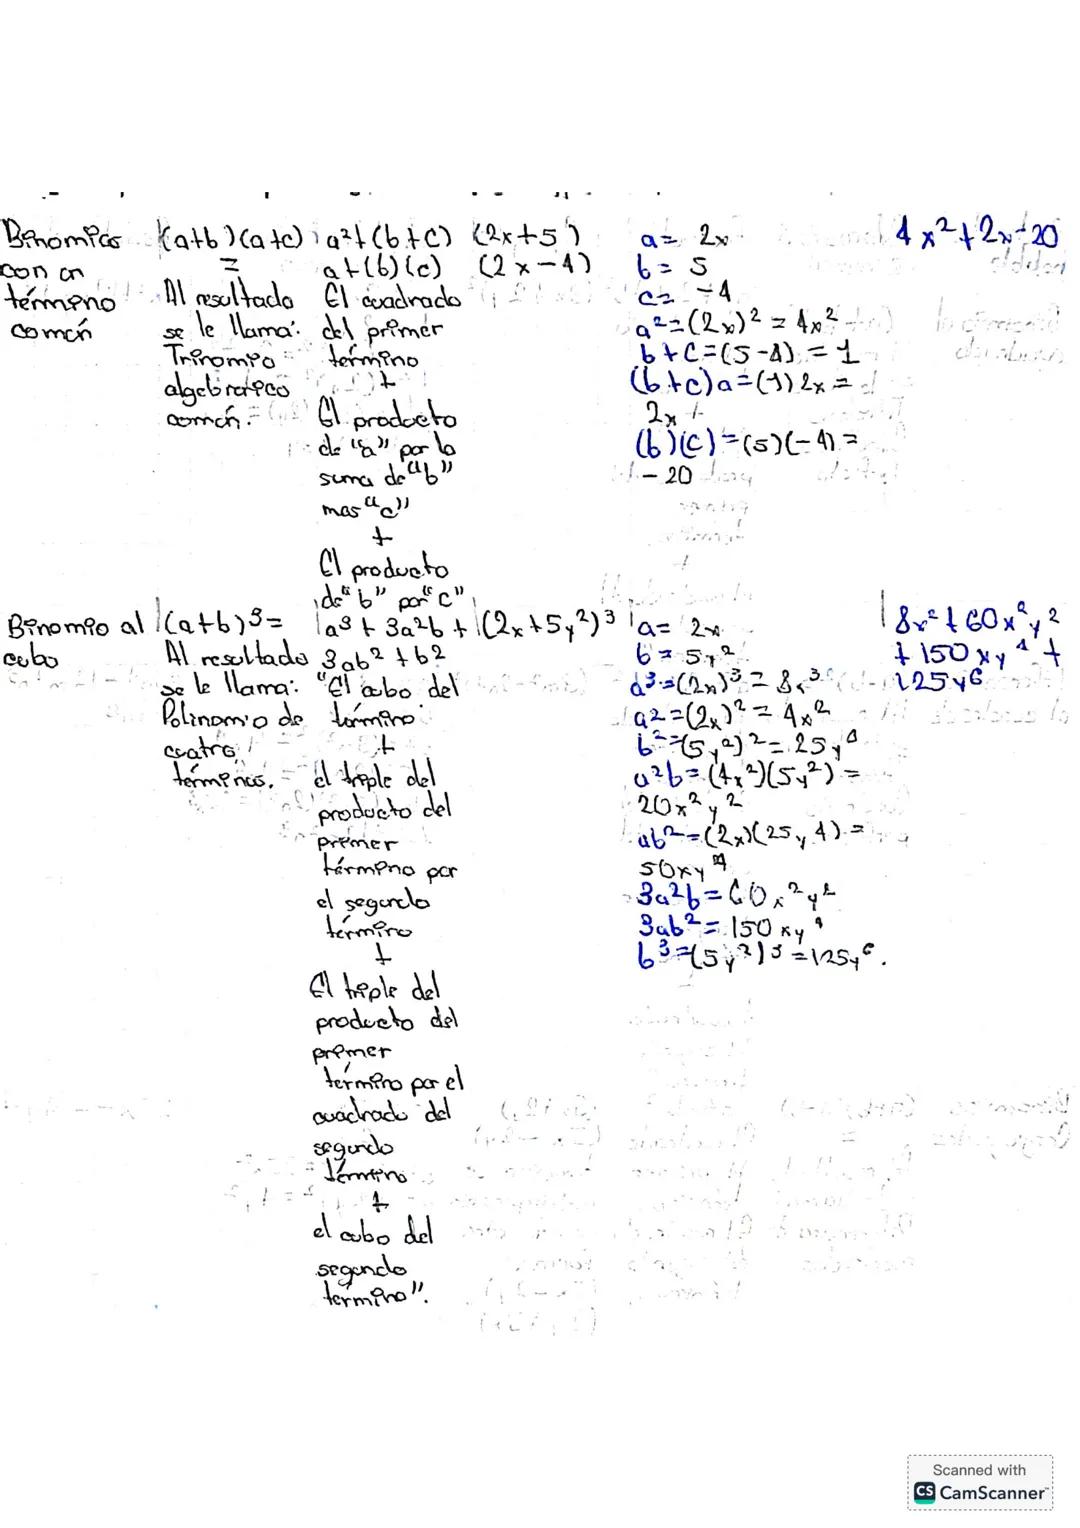 Binomios
con un
término
común
(a+b)(a+c)
=
Al resultado
se le llama:
Trinomio
algebraico
común.
a²+(b+c)
a+(b)(c)
El cuadrado
del primer
término
+
El producto
de "a" por la
suma de "b"
mas "c"
+
El producto
de "b" por "c"
(2x+5)
(2x-4)
a= 2x
b= 5
c= -4
a²=(2x)²=4x²
b+c=(5-4)=1
(b+c)a=(1)2x=
2x
(b)(c)=(5)(-4)=
-20
4x²+2x-20
Binomio al
cubo
(a+b)³=
Al resultado
se le llama:
Polinomio de
cuatro
términos.
a³+3a²b+
3ab²+b2
"El cubo del
término
+
el triple del
producto del
primer
término por
el segundo
término
+
El triple del
producto del
primer
término por el
cuadrado del
segundo
término
+
el cubo del
segundo
término".
(2x+5y²)³
a= 2x
b= 5y²
a³=(2x)³=8x³
a2=(2x)²=4x²
b²=(5y²)²=25y⁴
a²b=(4x²)(5y²)=
20x²y²
ab²=(2x)(25y4)=
50xy⁴
3a²b=60x²y²
3ab²=150xy⁴
b³=(5y²)³=125y⁶.
8x²+60x²y²
+150xy⁴+
125y6
Scanned with
CS CamScanner